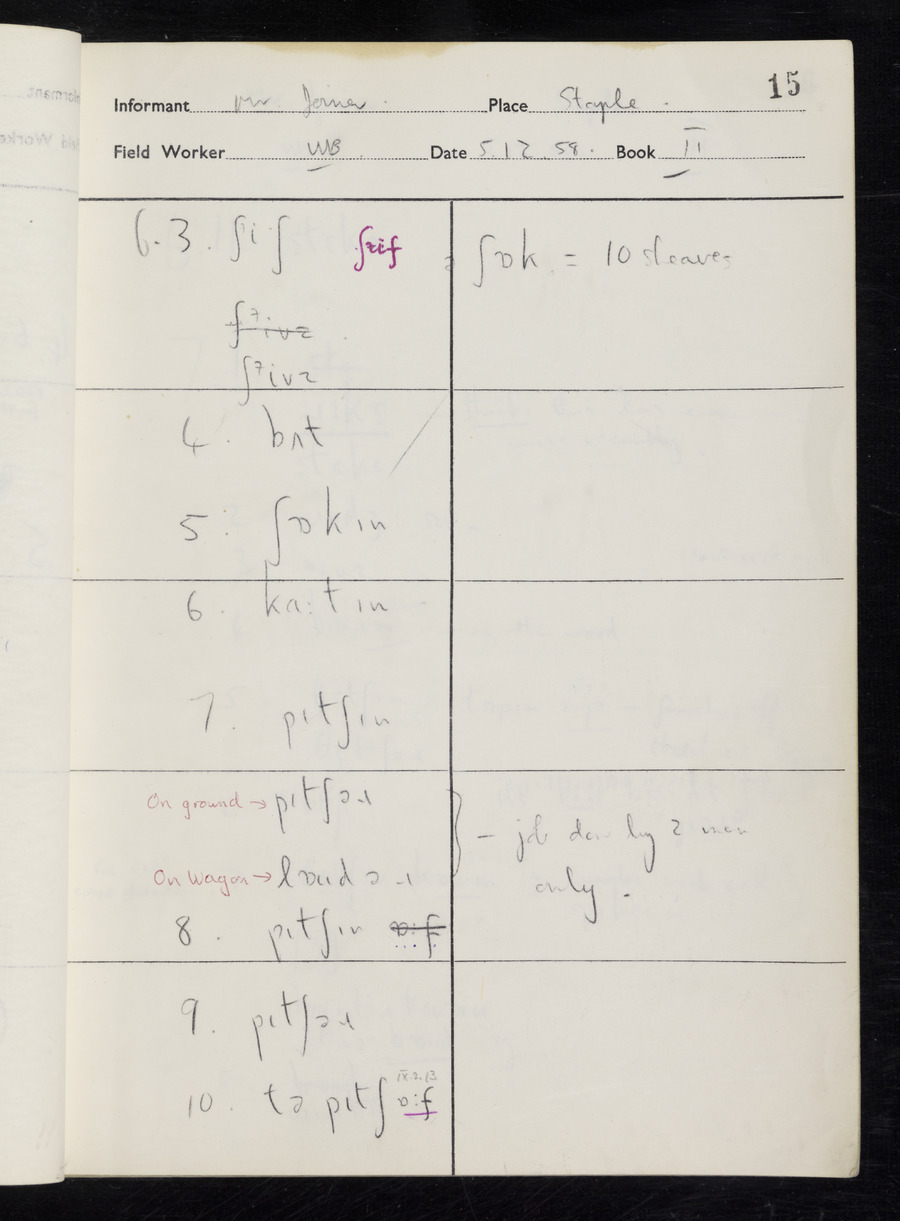 15
Informant Mr. Joiner. Place Staple.
Field Worker WB. Date 5.12.58. Book II
6.3. ʃif ʃɪif ʃɒk = 10 sheaves
ʃᶦivz
ʃᶦivz
4. bʌt
5. ʃɒkɪn
6. ka:tɪn
7. pɪtʃɪn
On ground → pɪtʃəɹ
— job done by 2 men
On wagon → lɒudəɹ
only.
8. pɪtʃɪn ɒ:f
9. pɪtʃəɹ
IX.2.13
10. tə pɪtʃ ɒ:f